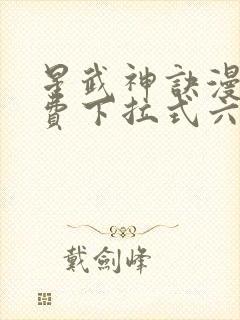 星武神訣漫
費下拉式六
戴劍峰